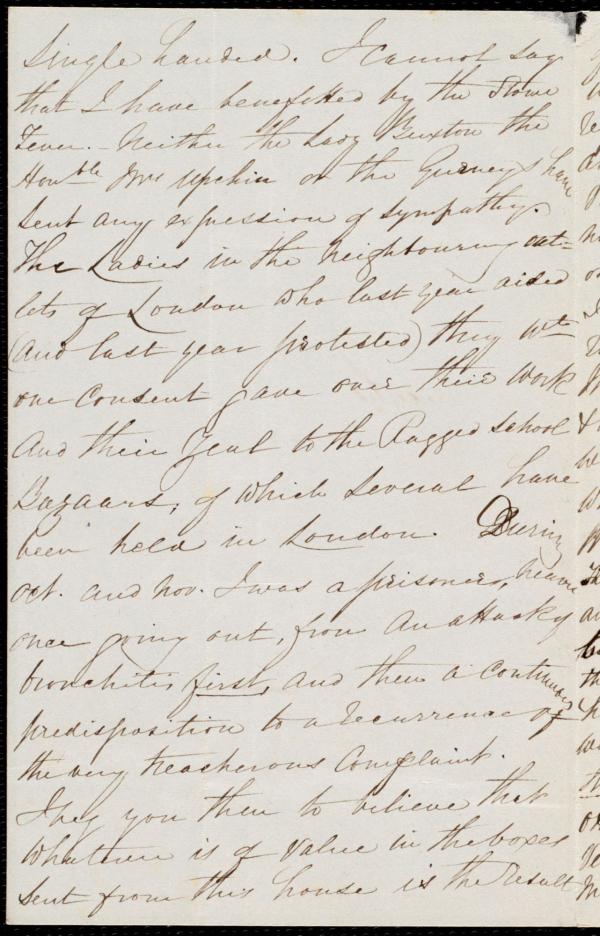 single handed. I cannot say
that I have benefitted by the Stowe
Fever. - Neither the Lady Buxton the
Honble Mrs Upcher or the Gurneys have
sent any expression of sympathy.
The Ladies in the neighbouring out=
lets of London who last year aided
(and last year protested) they wth
one consent gave over their work
And their Zeal to the Ragged School
Bazaars, of which several have
been held in London. During
Oct. and Nov. I was a prisoner, never
once going out, from an attack of
bronchitis first, and then a continuous
predisposition to a recurrence of
the very treacherous complaint.
I beg you then to believe that
whatever is of value in the boxes
sent from this house is the result